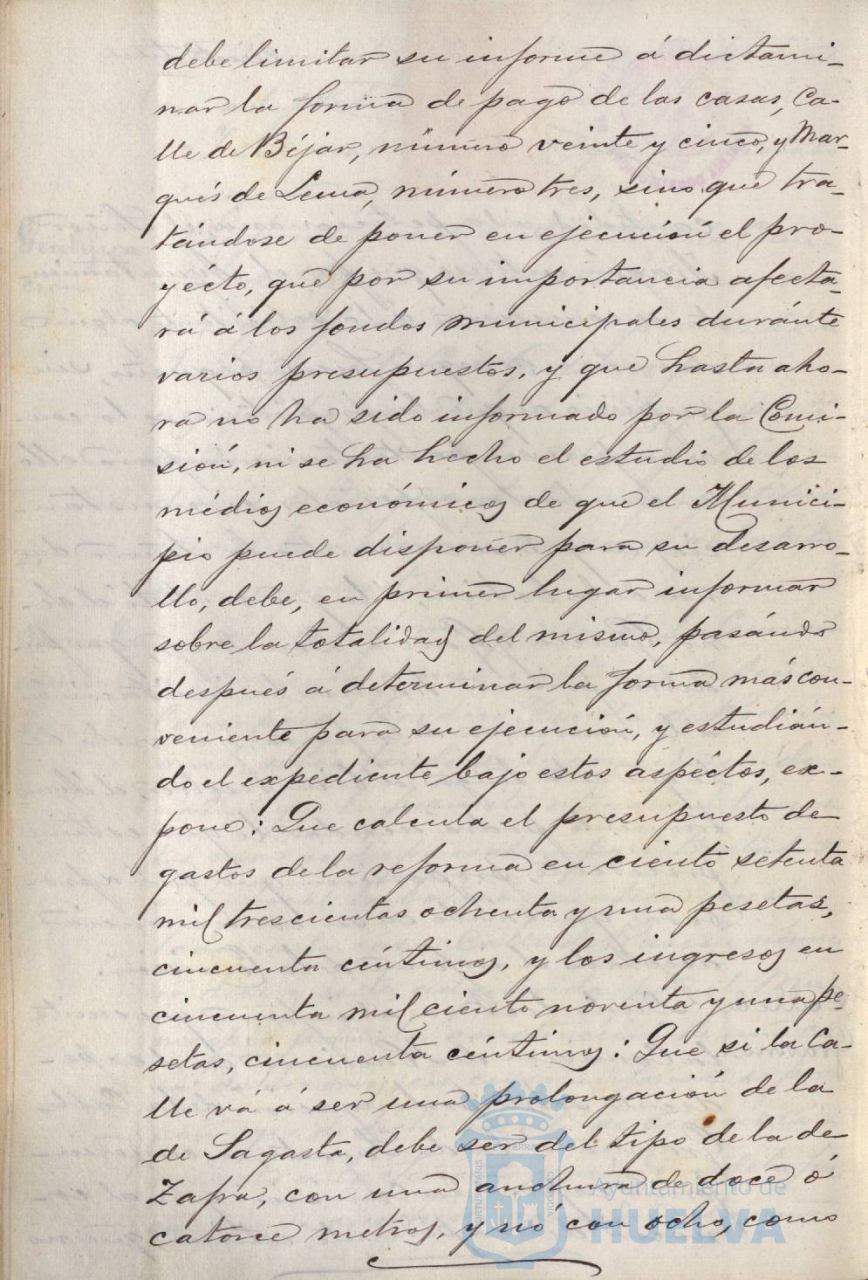 debe limitar su informe á dictami-
nar la forma de pago de las casas, Ca-
lle de Béjar, número veinte y cinco, y Mar-
qués de Lema, número tres, sino que tra-
tándose de poner en ejecución el pro-
yécto, que por su importancia afecta-
rá á los fondos municipales duránte
varios presupuestos, y que hasta aho-
ra no ha sido informado por la Comi-
sión, ni se ha hecho el estudio de los
médios económicos de que el Munici-
pio puede disponer para su desarro-
llo, debe, en primer lugar informar
sobre la totalidad del mismo, pasándo
después á determinar la forma más con-
veniente para su ejecución, y estudián-
do el expediente bajo estos aspéctos, ex-
pone: Que calcula el presupuesto de
gastos de la reforma en ciento setenta
mil trescientas ochenta y una pesetas,
cincuenta céntimos, y los ingresos en
cincuenta mil ciento noventa y una pe-
setas, cincuenta céntimos: Que si la Ca-
lle vá á ser una prolongación de la
de Sagasta, debe ser del tipo de la de
Zafra, con una anchura de doce ó
catorce metros, y nó con ocho, como
Ayuntamiento de
HUELVA